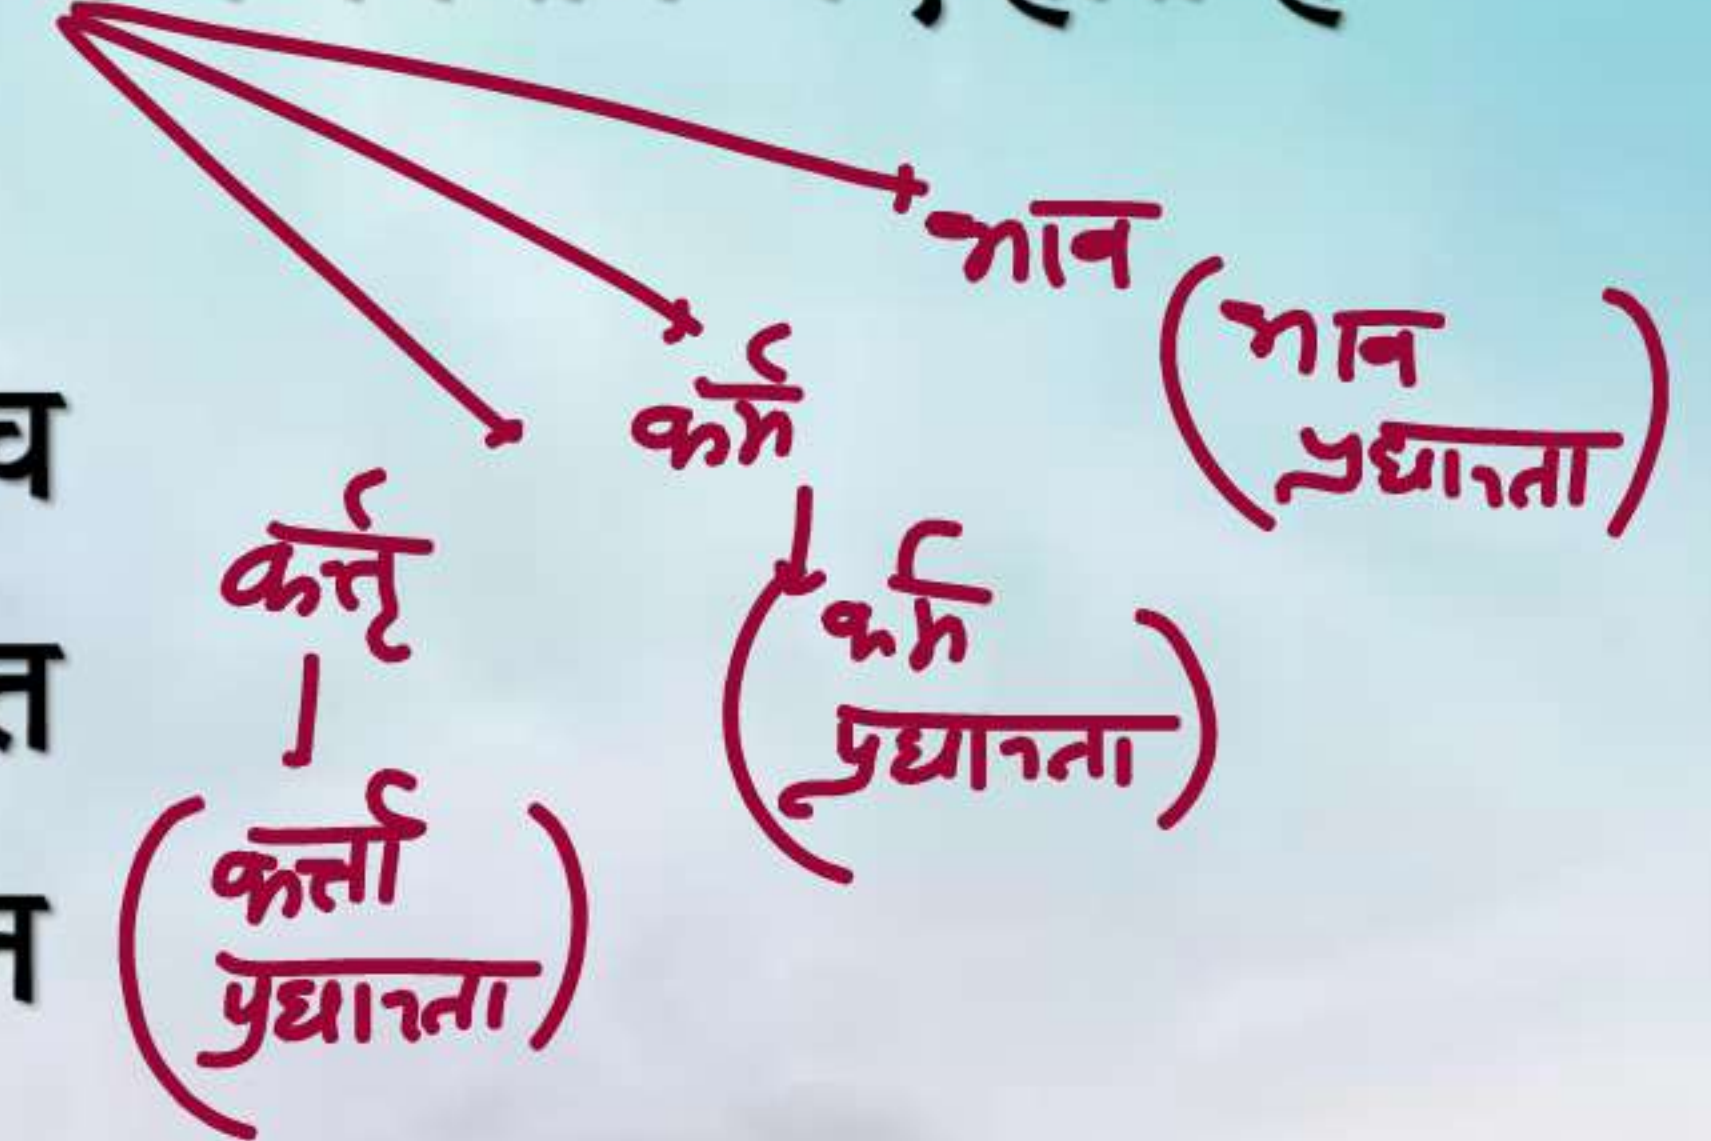 भाव
(भाव
प्रधानता)
कर्म
(कर्म
प्रधानता)
कर्त्तृ
(कर्त्ता
प्रधानता)